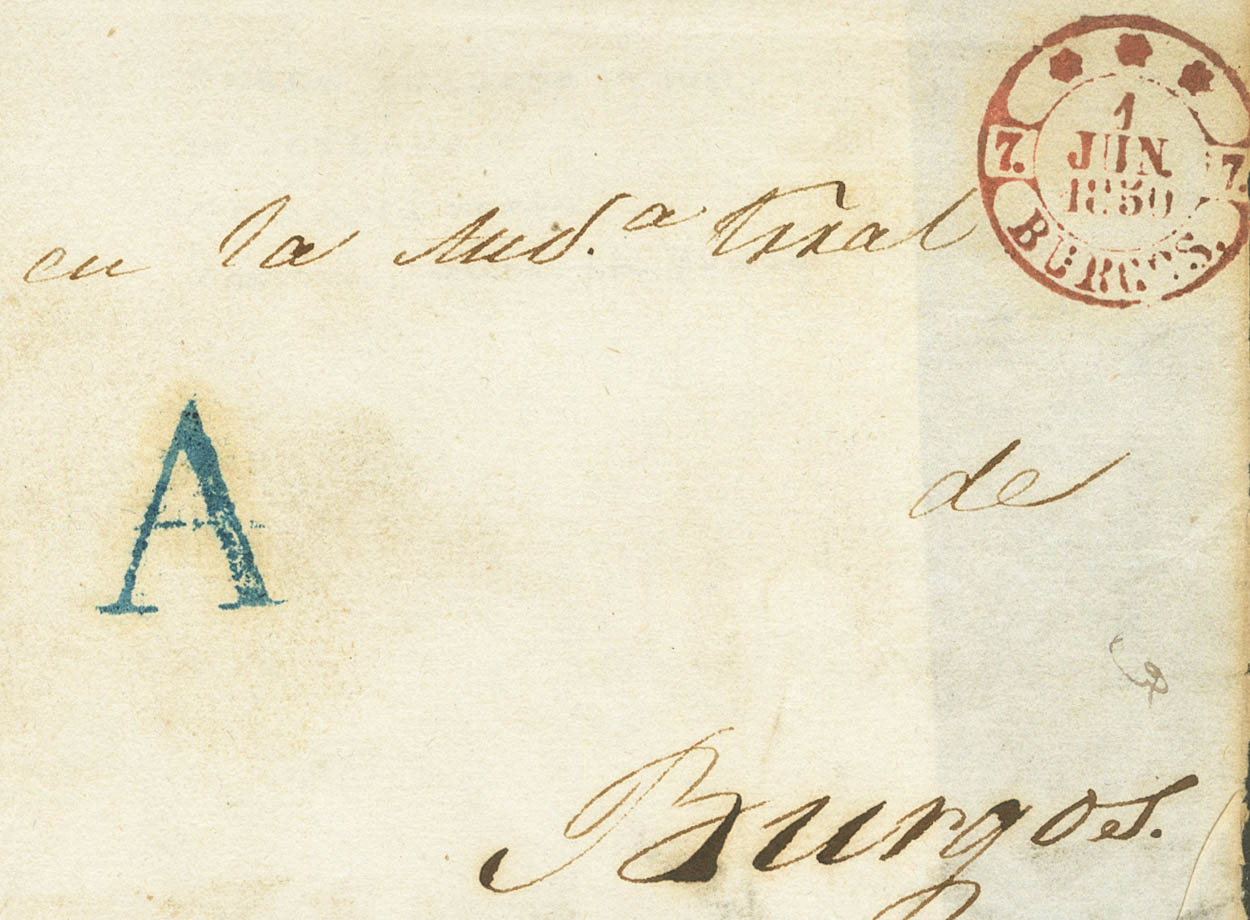 1
JUN
1850
7. 7.
BURGOS.
en la Aud.ª Trral
A
de
Burgos.